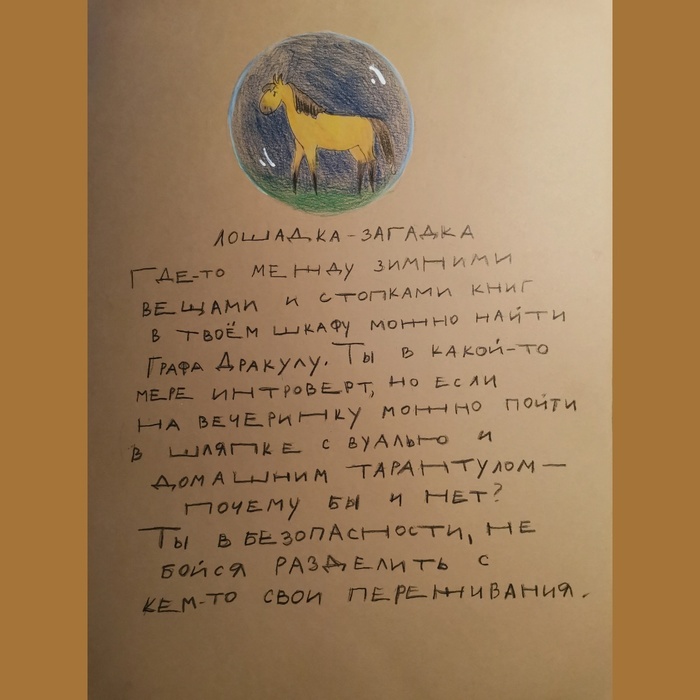 ЛОШАДКА-ЗАГАДКА
ГДЕ-ТО МЕЖДУ ЗИМНИМИ
ВЕЩАМИ И СТОПКАМИ КНИГ
В ТВОЁМ ШКАФУ МОЖНО НАЙТИ
ГРАФА ДРАКУЛУ. ТЫ В КАКОЙ-ТО
МЕРЕ ИНТРОВЕРТ, НО ЕСЛИ
НА ВЕЧЕРИНКУ МОЖНО ПОЙТИ
В ШЛЯПКЕ С ВУАЛЬЮ И
ДОМАШНИМ ТАРАНТУЛОМ —
ПОЧЕМУ БЫ И НЕТ?
ТЫ В БЕЗОПАСНОСТИ, НЕ
БОЙСЯ РАЗДЕЛИТЬ С
КЕМ-ТО СВОИ ПЕРЕЖИВАНИЯ.